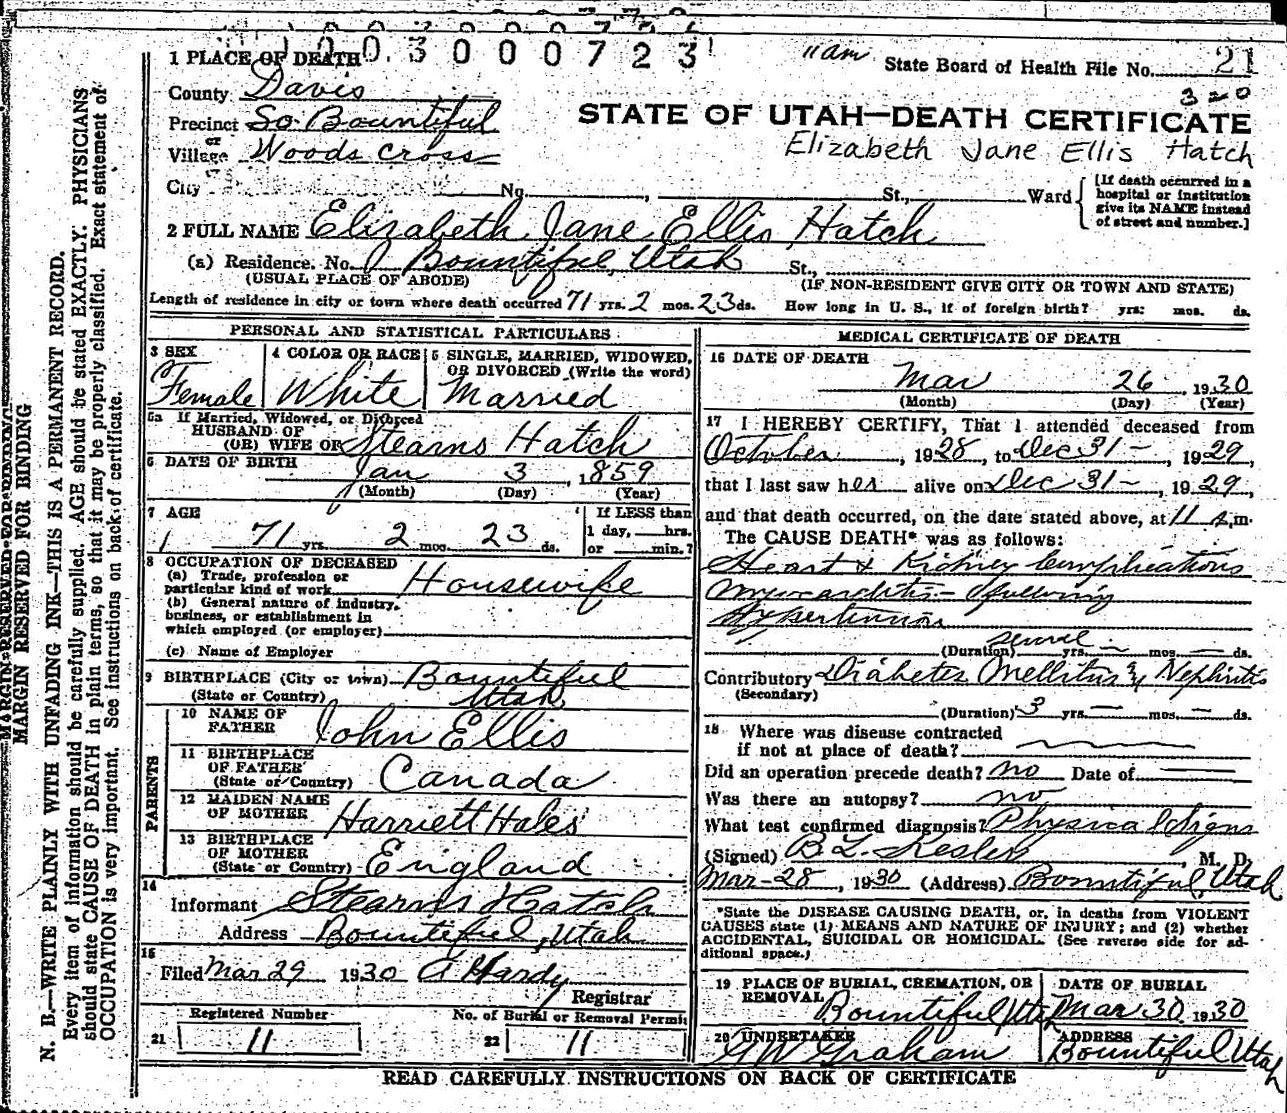 MARGIN RESERVED FOR BINDING
N. B.—WRITE PLAINLY WITH UNFADING INK—THIS IS A PERMANENT RECORD.
Every item of information should be carefully supplied. AGE should be stated EXACTLY. PHYSICIANS
should state CAUSE OF DEATH in plain terms, so that it may be properly classified. Exact statement of
OCCUPATION is very important. See instructions on back of certificate.
0030000723
11am
State Board of Health File No. 21
320
1 PLACE OF DEATH
County Davis
Precinct So. Bountiful
or
Village Woods Cross
City No. , St., Ward
STATE OF UTAH—DEATH CERTIFICATE
Elizabeth Jane Ellis Hatch
[If death occurred in a
hospital or institution
give its NAME instead
of street and number.]
2 FULL NAME Elizabeth Jane Ellis Hatch
(a) Residence. No. Bountiful, Utah St.,
(USUAL PLACE OF ABODE) (IF NON-RESIDENT GIVE CITY OR TOWN AND STATE)
Length of residence in city or town where death occurred 71 yrs. 2 mos. 23 ds. How long in U. S., if of foreign birth? yrs. mos. ds.
PERSONAL AND STATISTICAL PARTICULARS
3 SEX
Female
4 COLOR OR RACE
White
5 SINGLE, MARRIED, WIDOWED,
OR DIVORCED (Write the word)
Married
5a If Married, Widowed, or Divorced
HUSBAND OF
(OR) WIFE OF Stearns Hatch
6 DATE OF BIRTH Jan 3, 1859
(Month) (Day) (Year)
7 AGE
71 yrs. 2 mos. 23 ds.
If LESS than
1 day, hrs.
or min.?
8 OCCUPATION OF DECEASED
(a) Trade, profession or
particular kind of work Housewife
(b) General nature of industry,
business, or establishment in
which employed (or employer)
(c) Name of Employer
9 BIRTHPLACE (City or town) Bountiful
(State or Country) Utah
PARENTS
10 NAME OF
FATHER John Ellis
11 BIRTHPLACE
OF FATHER
(State or Country) Canada
12 MAIDEN NAME
OF MOTHER Harriett Hales
13 BIRTHPLACE
OF MOTHER
(State or Country) England
14
Informant Stearns Hatch
Address Bountiful, Utah
15
Filed Mar 29 1930 A Hardy
Registrar
Registered Number
21 11
No. of Burial or Removal Permit
22 11
MEDICAL CERTIFICATE OF DEATH
16 DATE OF DEATH
Mar 26 1930
(Month) (Day) (Year)
17 I HEREBY CERTIFY, That I attended deceased from
October, 1928, to Dec 31 -, 1929,
that I last saw her alive on Dec 31 -, 1929,
and that death occurred, on the date stated above, at 11 a.m.
The CAUSE DEATH* was as follows:
Heart & Kidney Complications
Myocarditis - following
Hypertension
(Duration) several yrs. — mos. — ds.
Contributory Diabetes Mellitus & Nephritis
(Secondary)
(Duration) 3 yrs. — mos. — ds.
18 Where was disease contracted
if not at place of death?
Did an operation precede death? no Date of
Was there an autopsy? no
What test confirmed diagnosis? Physical Signs
(Signed) B L Kesler, M. D.
Mar-28, 1930 (Address) Bountiful, Utah
*State the DISEASE CAUSING DEATH, or, in deaths from VIOLENT
CAUSES state (1) MEANS AND NATURE OF INJURY; and (2) whether
ACCIDENTAL, SUICIDAL OR HOMICIDAL. (See reverse side for ad-
ditional space.)
19 PLACE OF BURIAL, CREMATION, OR
REMOVAL Bountiful Utah
DATE OF BURIAL
Mar 30 1930
20 UNDERTAKER
G W Graham
ADDRESS
Bountiful Utah
READ CAREFULLY INSTRUCTIONS ON BACK OF CERTIFICATE